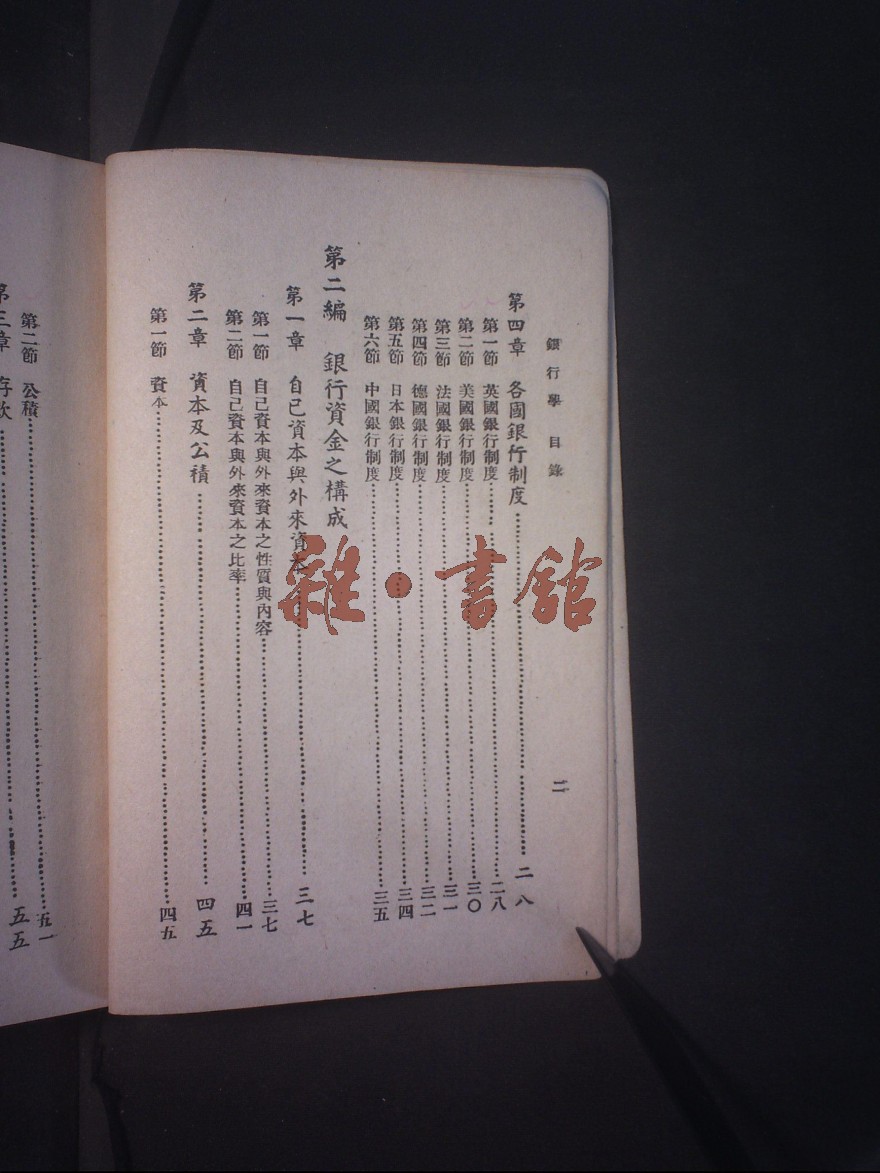 銀行學 目錄 二
第四章 各國銀行制度……二八
第一節 英國銀行制度……二八
第二節 美國銀行制度……三〇
第三節 法國銀行制度……三一
第四節 德國銀行制度……三二
第五節 日本銀行制度……三四
第六節 中國銀行制度……三五
第二編 銀行資金之構成
第一章 自己資本與外來資本……三七
第一節 自己資本與外來資本之性質與內容……三七
第二節 自己資本與外來資本之比率……四一
第二章 資本及公積……四五
第一節 資本……四五
第二節 公積……五一
第三章 存款……五五
雜·書館